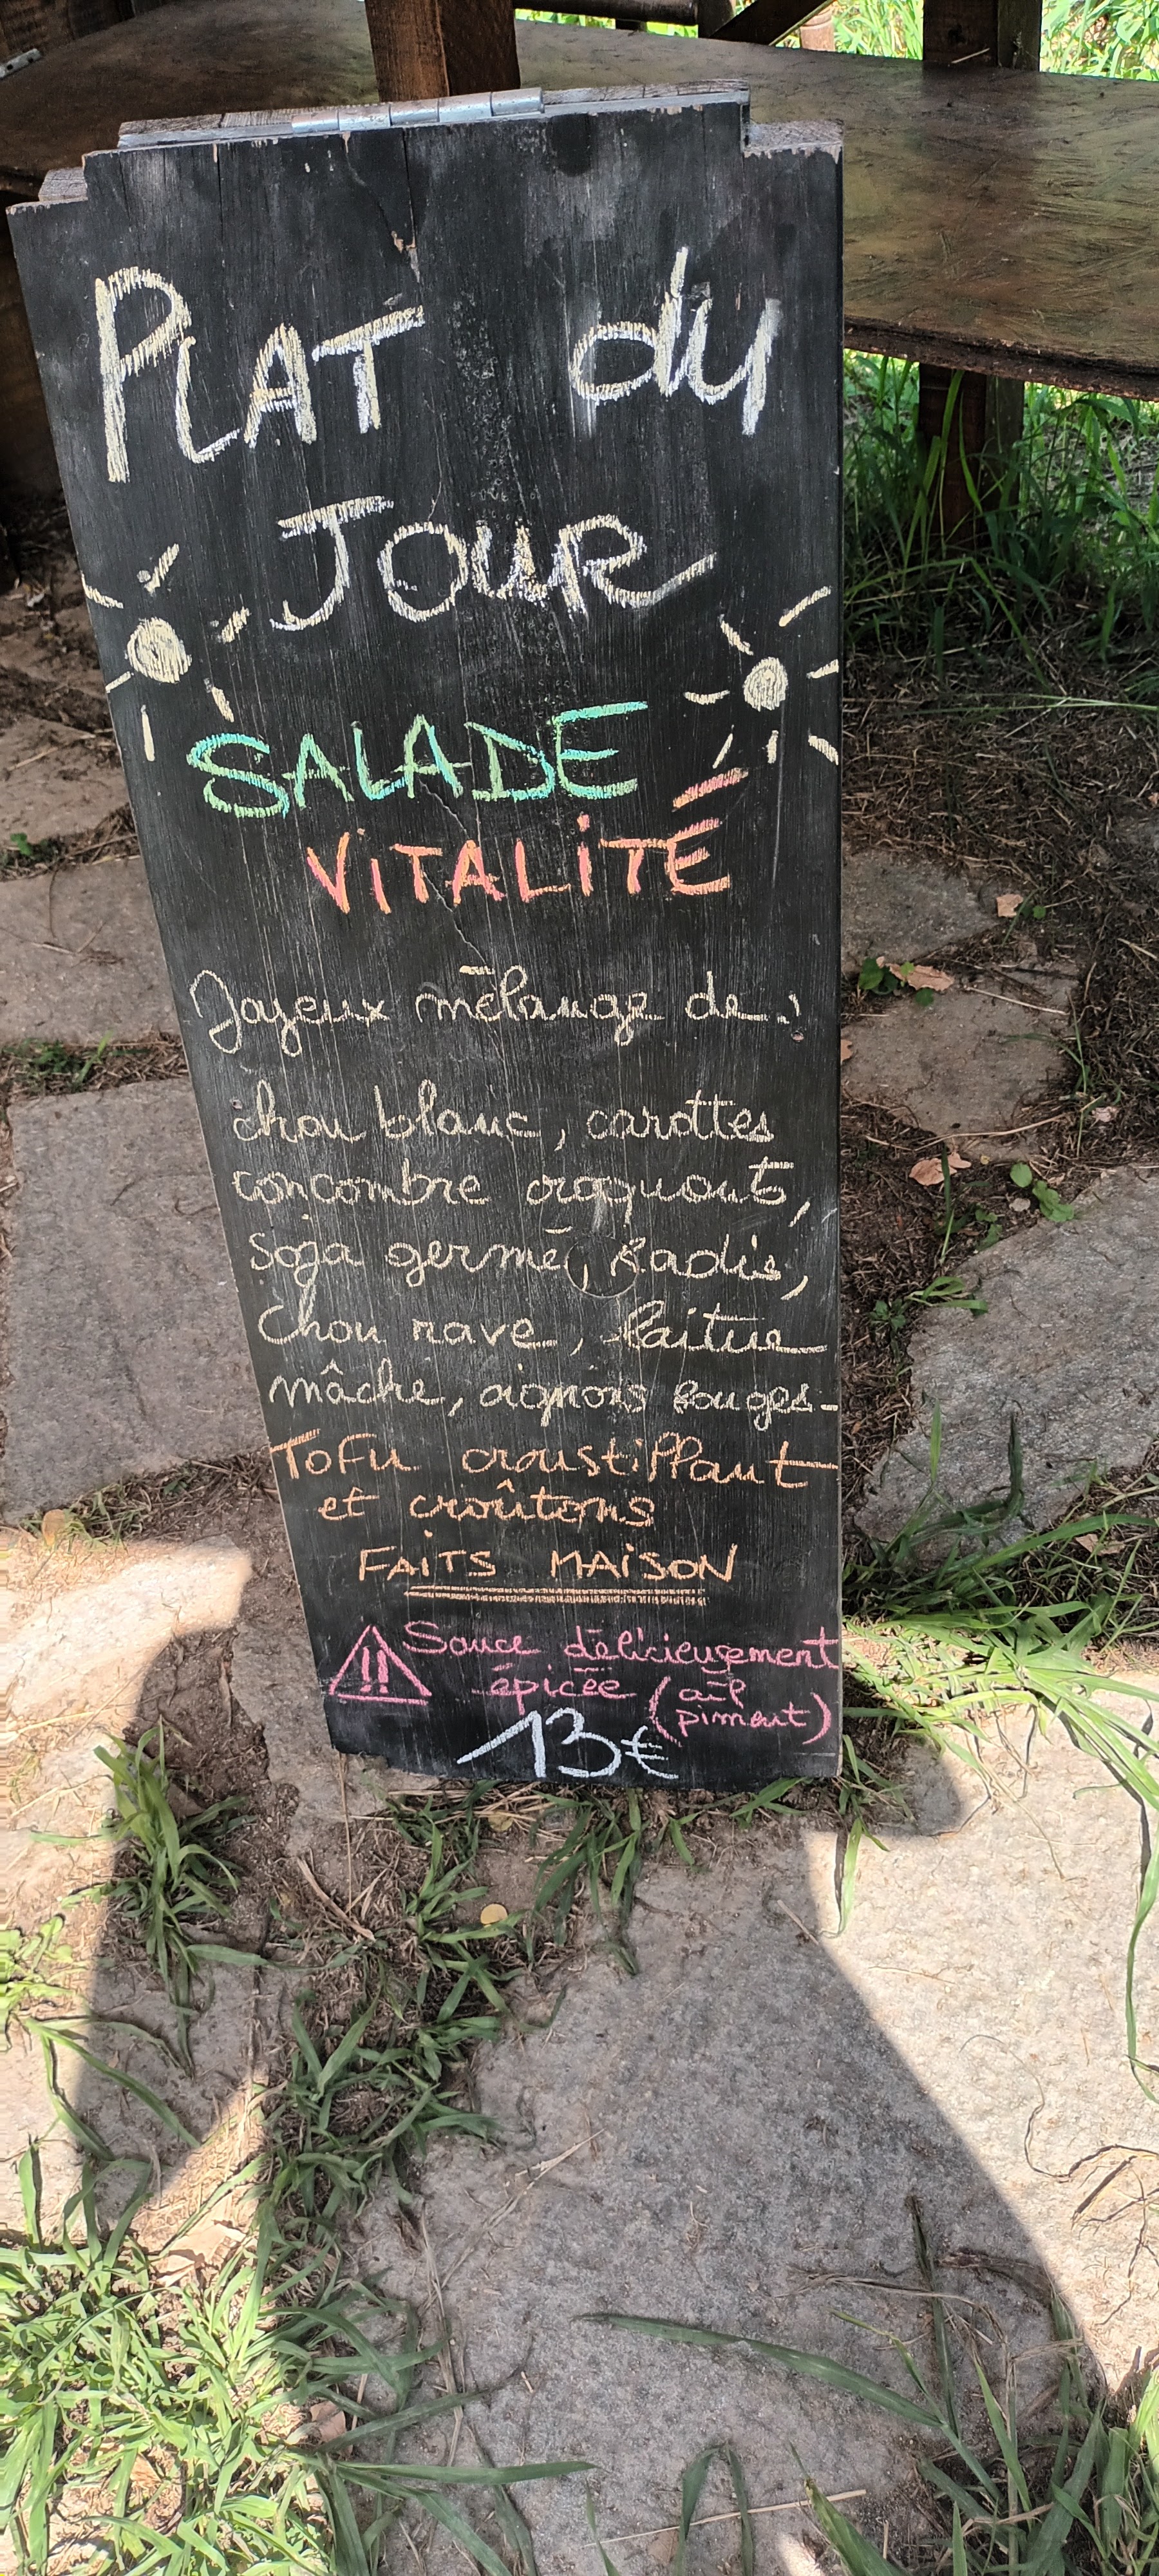 PLAT du
JOUR
SALADE
ViTALiTÉ
Joyeux mélange de :
chou blanc, carottes
concombre croquants,
Soja germé, Radis,
Chou rave, laitue
mâche, oignons Rouges -
ToFu croustillant
et croûtons
FAiTS MAiSON
!! Sauce délicieusement
épicée (ail
piment)
13€